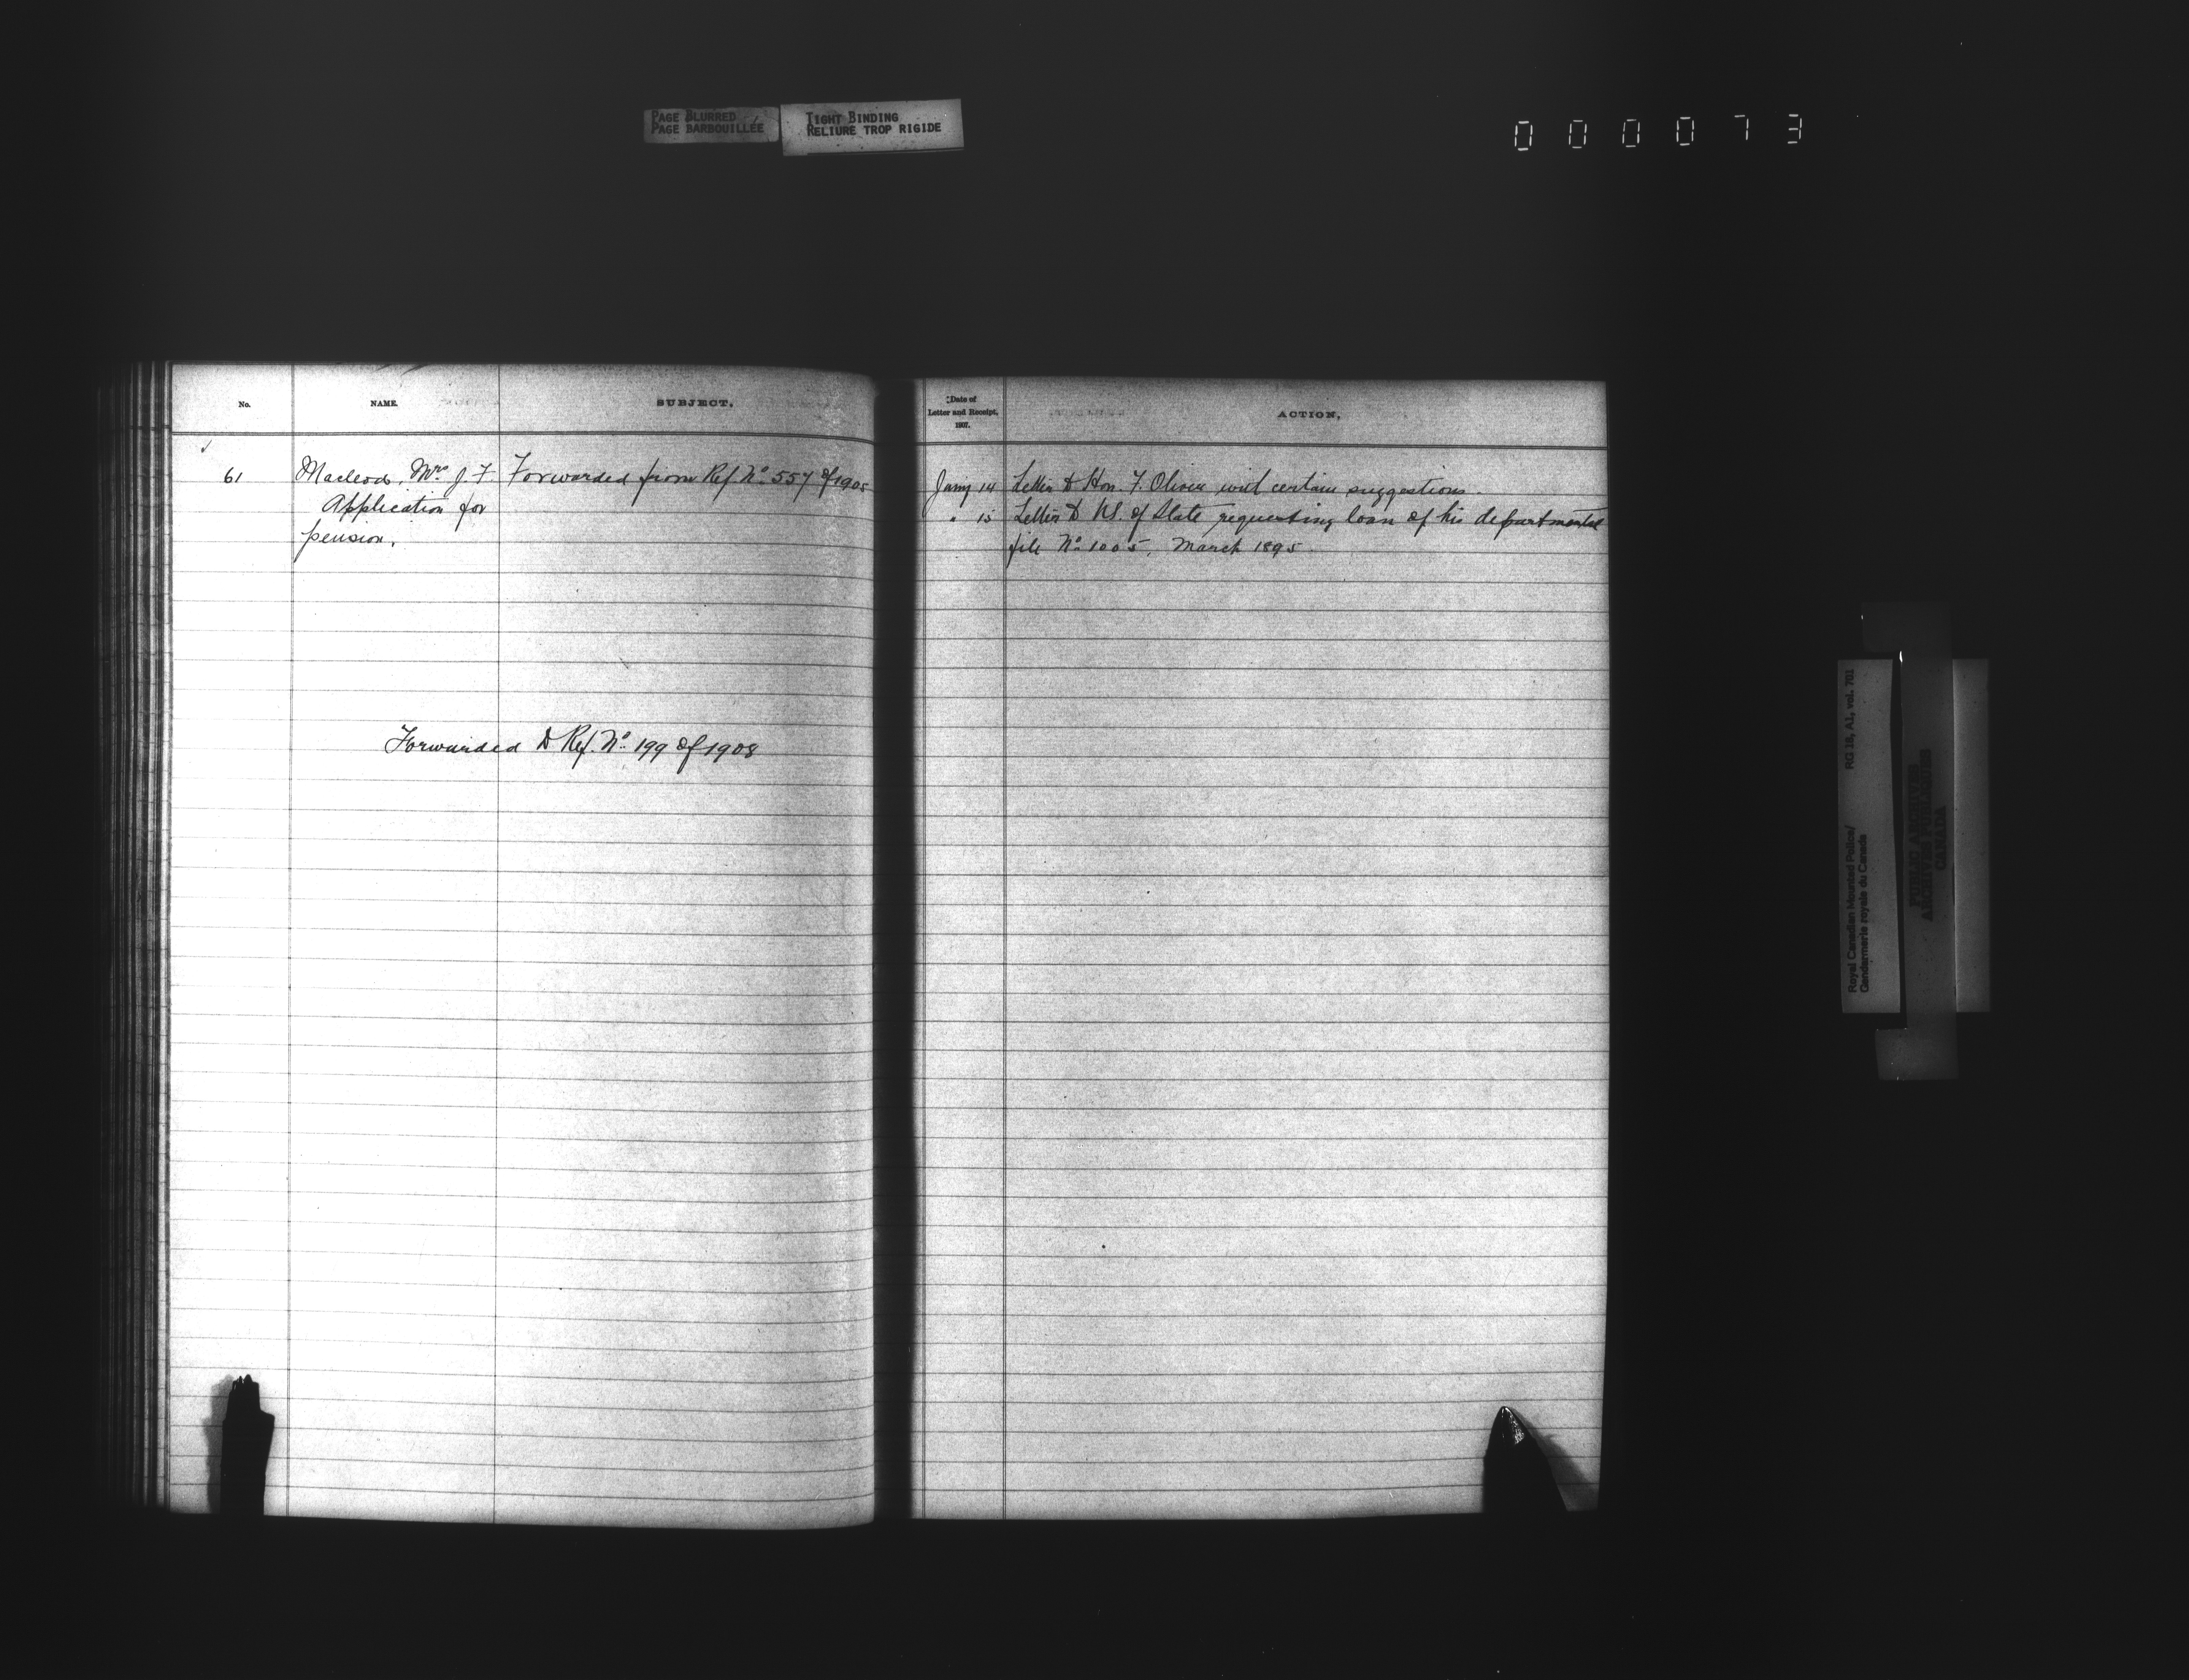 PAGE BLURRED
PAGE BARBOUILLÉE
TIGHT BINDING
RELIURE TROP RIGIDE
000073
No.
NAME.
SUBJECT.
61
Macleod, Mrs J. F.
Application for
pension.
Forwarded from Ref No 557 of 1905
Forwarded to Ref. No 199 of 1908
Date of
Letter and Receipt,
1907.
ACTION,
Jany 14 Letter to Hon F. Oliver with certain suggestions.
" 15 Letter to U.S. of State requesting loan of his departmental
file No 1005, March 1895.
Royal Canadian Mounted Police/ RG 18, A1, vol. 701
Gendarmerie royale du Canada
PUBLIC ARCHIVES
ARCHIVES PUBLIQUES
CANADA